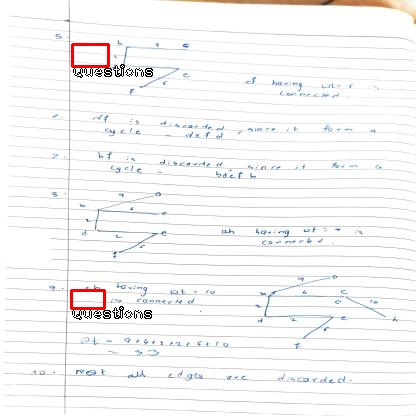 5.
b 4 c
2
Questions
e
f
ef having wt = 5 is
connected.
6. df is discarded, since it form a
cycle - defd
7. bf is discarded, since it form a
cycle - bdefb
8.
9
b 4 c
2
d 2 e
f
ab having wt = 9 is
connected.
9. ch having wt = 10
is connected
Questions
9
b 4 c
2 10
d 2 e h
f
= 33
10. all edges are discarded.